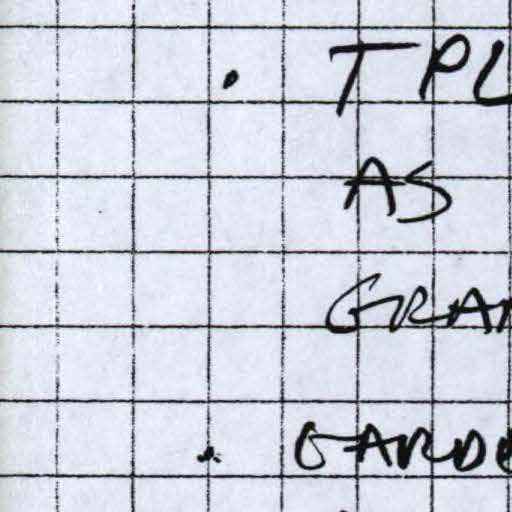 · TPL
AS
GRAN
· GARDE